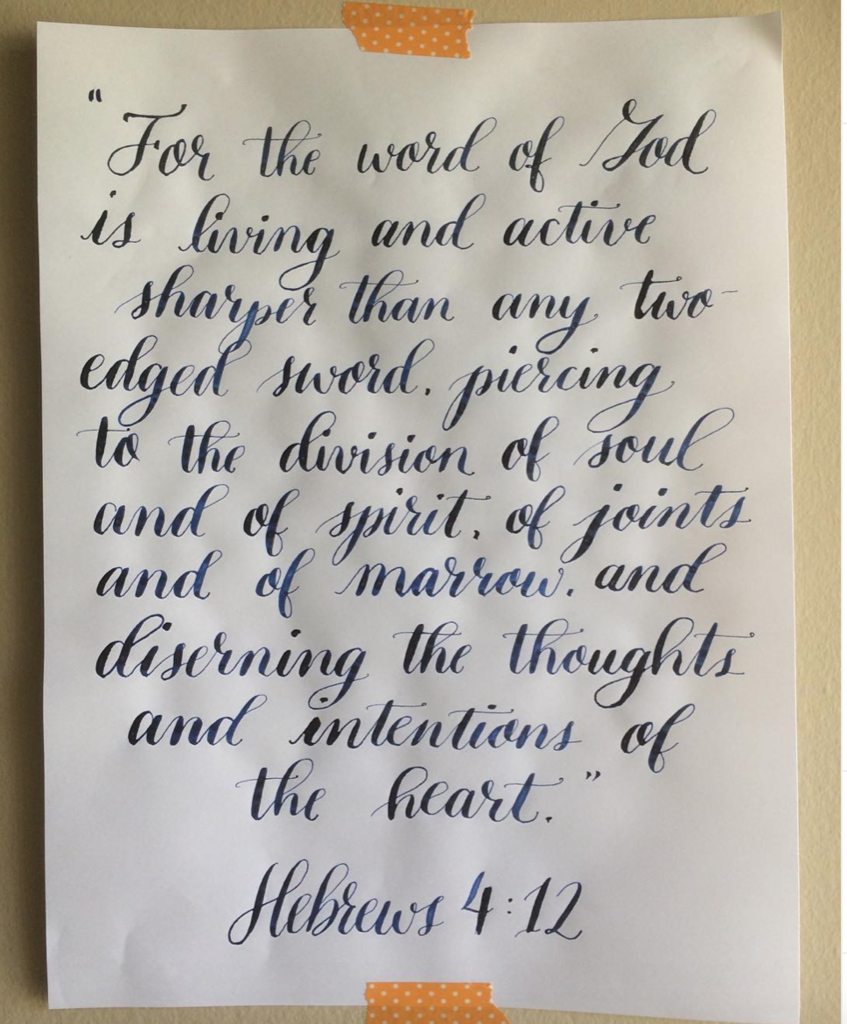 “For the word of God
is living and active
sharper than any two-
edged sword. piercing
to the division of soul
and of spirit. of joints
and of marrow. and
diserning the thoughts
and intentions of
the heart.”
Hebrews 4:12